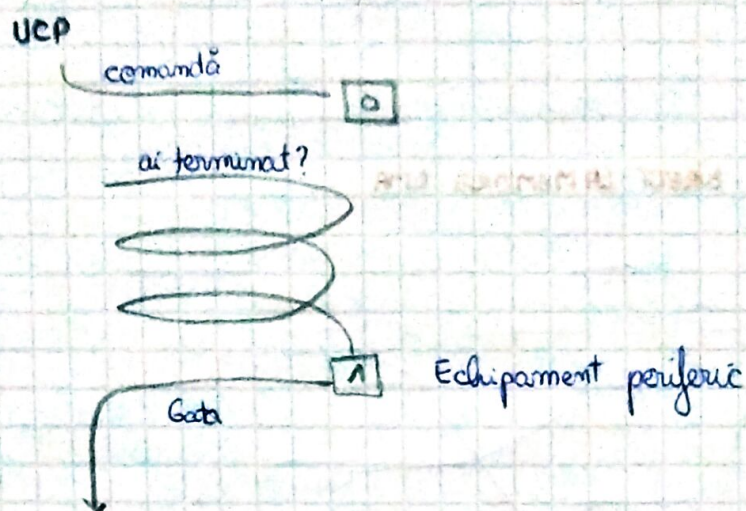 UCP
comandă
0
ai terminat?
1
Echipament periferic
Gata